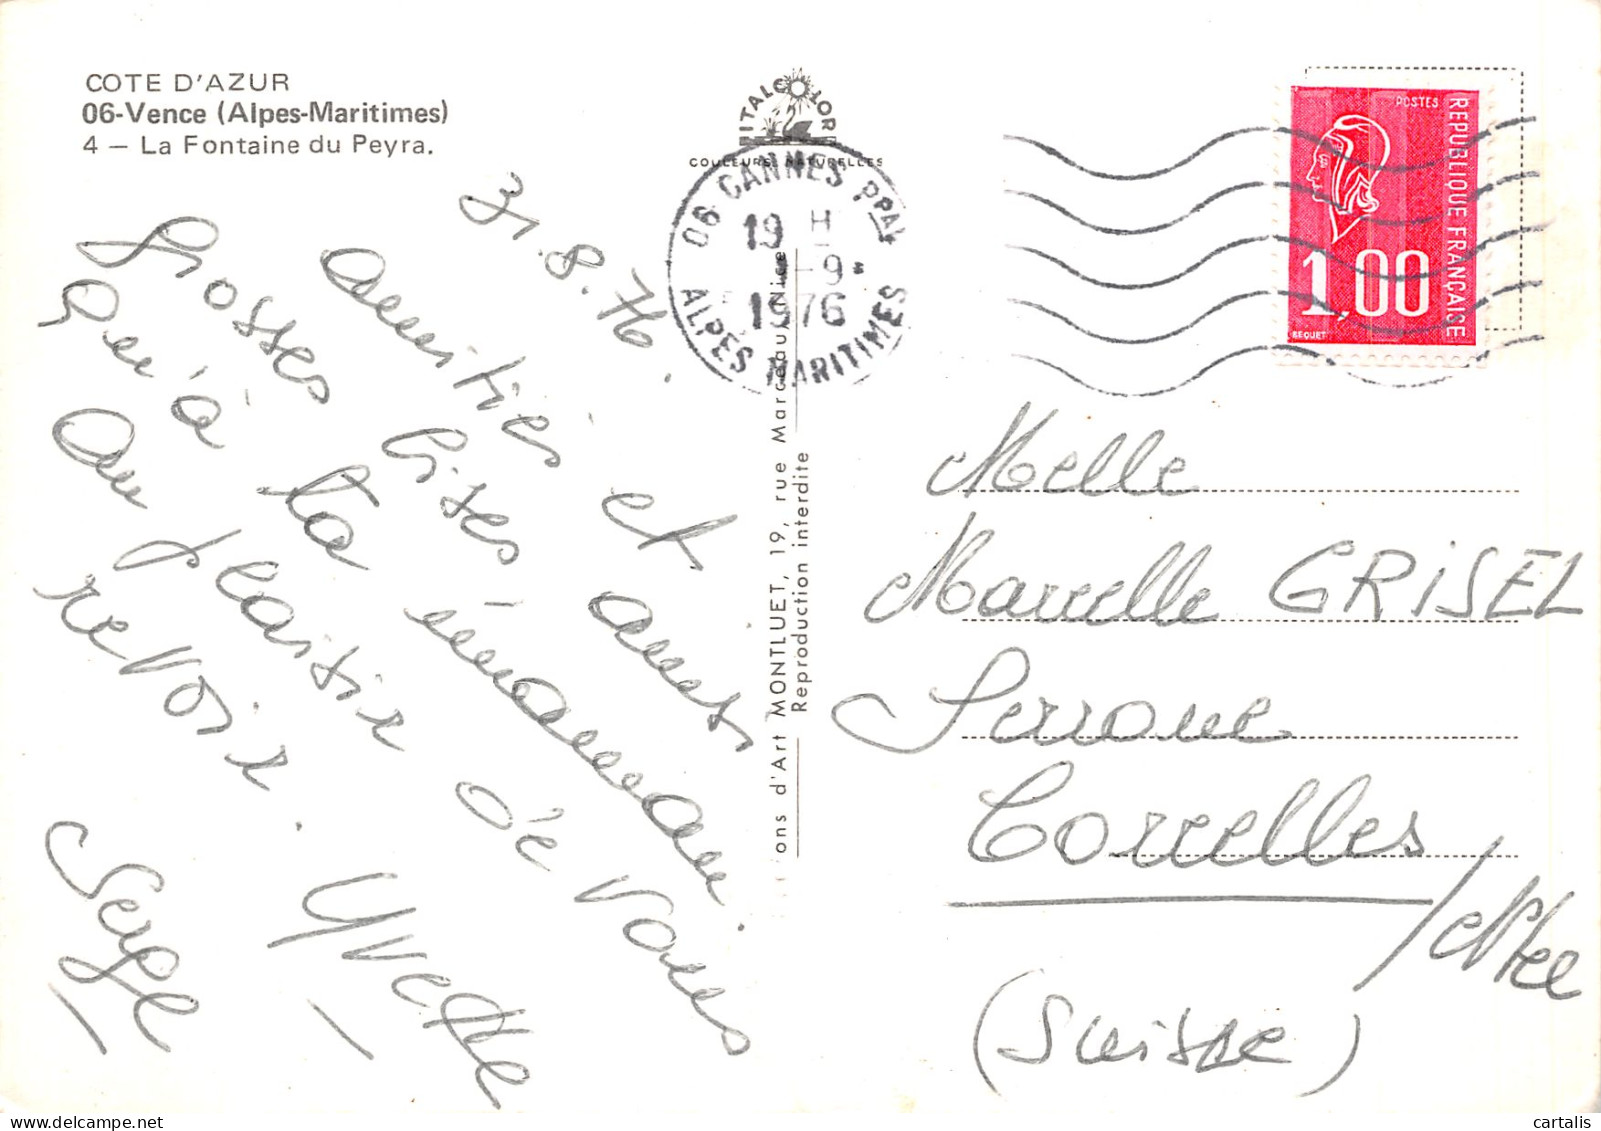 COTE D'AZUR
06-Vence (Alpes-Maritimes)
4 — La Fontaine du Peyra.
31.8.76.
Grosses amitiés et
bises ainsi
Qu'à ta
Au plaisir de vous
revoir.
Yvette
Serge
ITALCOLOR
COULEURS NATURELLES
06 CANNES PPAL
19 H
1-9
1976
ALPES MARITIMES
ons d'Art MONTLUET, 19, rue Marceau, Nice
Reproduction interdite
POSTES
REPUBLIQUE FRANÇAISE
1,00
BEQUET
Moelle
Marcelle GRISEL
Serroue
Corcelles
/Ntel
(Suisse)
cartalis